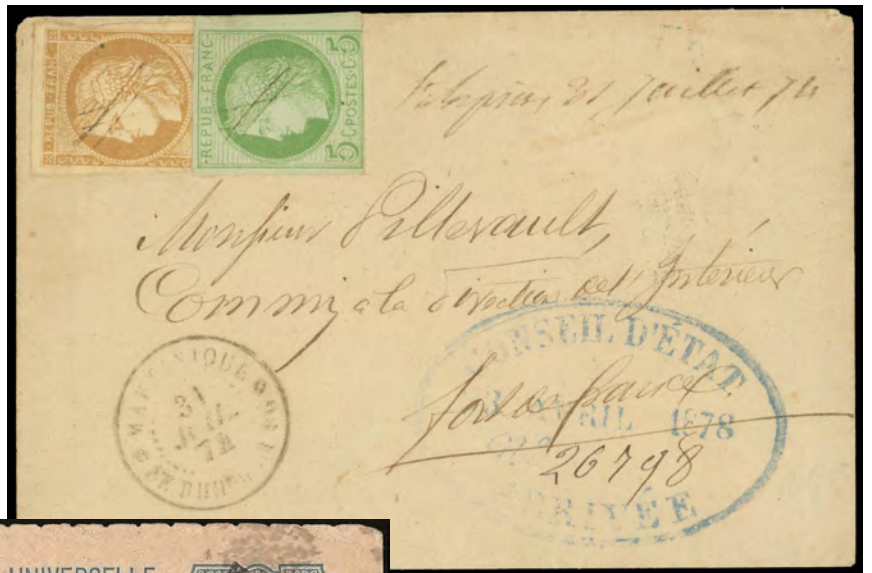 REPUB · FRANC
REPUB · FRANC · 5 C POSTES 5 C
31 Juillet 74
Monsieur Pillevault,
Commis a la direction de l'Intérieur
MARTINIQUE
31
JUIL.
74
CONSEIL D'ÉTAT
AVRIL 1878
ARRIVÉE
fort de france
26798
UNIVERSELLE